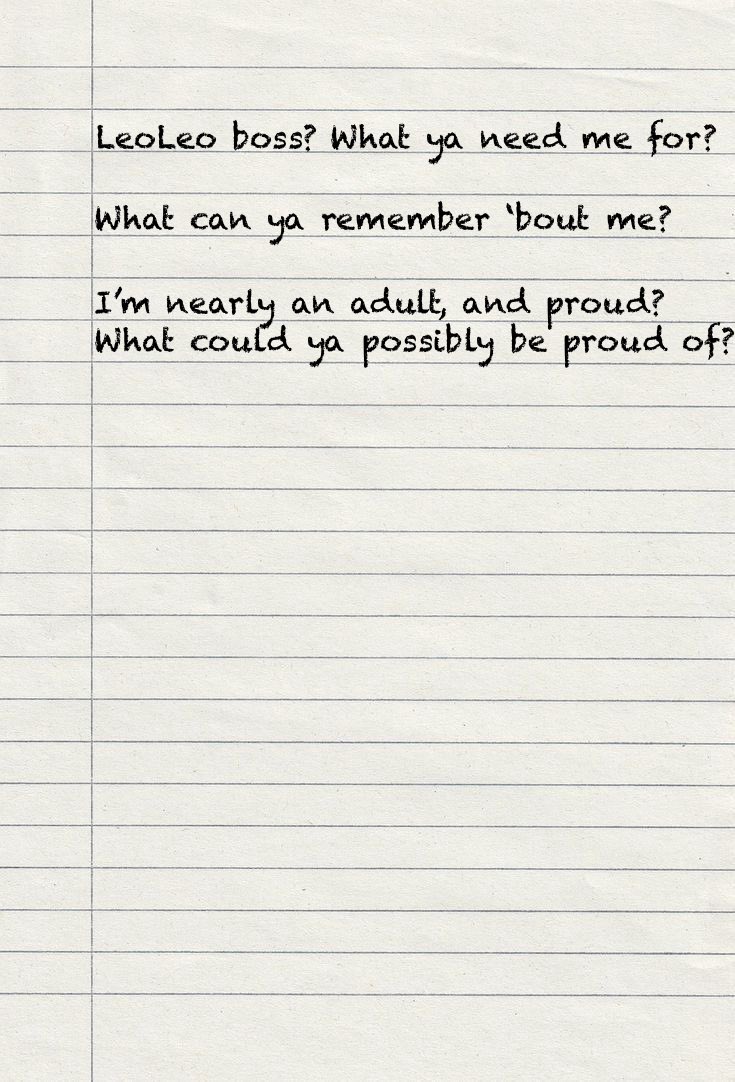 LeoLeo boss? What ya need me for?
What can ya remember ‘bout me?
I’m nearly an adult, and proud?
What could ya possibly be proud of?